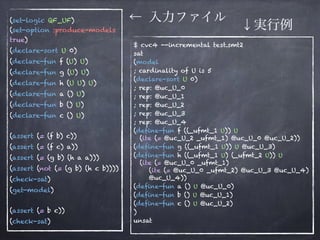 ← 入力ファイル
↓実行例
(set-logic QF_UF)
(set-option :produce-models
true)
(declare-sort U 0)
(declare-fun f (U) U)
(declare-fun g (U) U)
(declare-fun h (U U) U)
(declare-fun a () U)
(declare-fun b () U)
(declare-fun c () U)
(assert (= (f b) c))
(assert (= (f c) a))
(assert (= (g b) (h a a)))
(assert (not (= (g b) (h c b))))
(check-sat)
(get-model)
(assert (= b c))
(check-sat)
$ cvc4 --incremental test.smt2
sat
(model
; cardinality of U is 5
(declare-sort U 0)
; rep: @uc_U_0
; rep: @uc_U_1
; rep: @uc_U_2
; rep: @uc_U_3
; rep: @uc_U_4
(define-fun f ((_ufmt_1 U)) U
(ite (= @uc_U_2 _ufmt_1) @uc_U_0 @uc_U_2))
(define-fun g ((_ufmt_1 U)) U @uc_U_3)
(define-fun h ((_ufmt_1 U) (_ufmt_2 U)) U
(ite (= @uc_U_0 _ufmt_1)
(ite (= @uc_U_0 _ufmt_2) @uc_U_3 @uc_U_4)
@uc_U_4))
(define-fun a () U @uc_U_0)
(define-fun b () U @uc_U_1)
(define-fun c () U @uc_U_2)
)
unsat